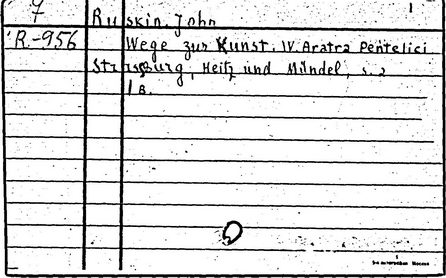 7 Ruskin, John
R-956 Wege zur Kunst. IV. Aratra Pentelici
Strassburg, Heitz und Mündel, s. a
1 B.